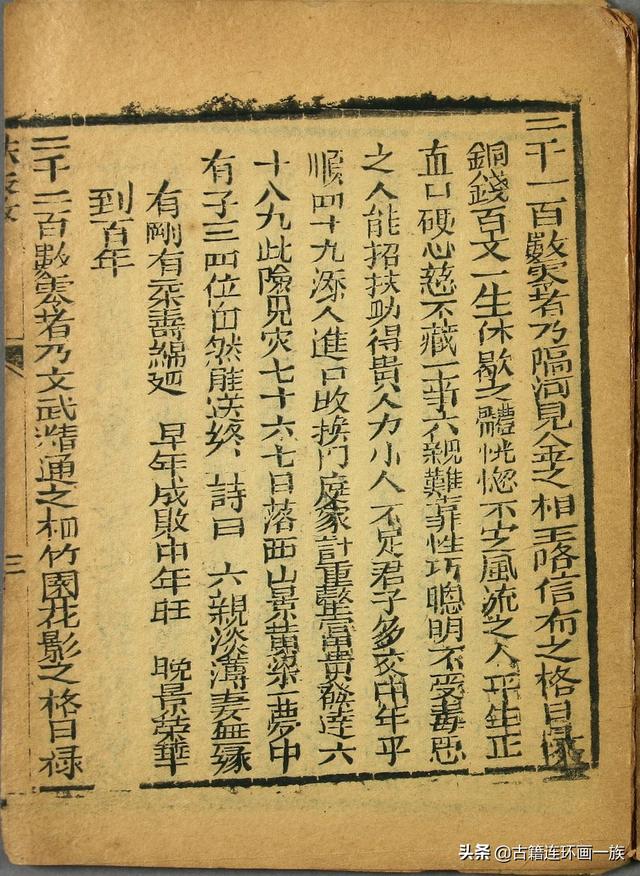 三千一百數零者乃隔河見金之相玉峈信布之格日禄
銅錢百文一生休歇之體恍惚不定風流之人平生正
直口硬心慈不藏一事六親難靠性巧聰明不受毒惡
之人能招扶助得貴人力小人不足君子多交中年平
順四十九添人進口改換門庭家計重整富貴發達六
十八九此險見灾七十六七日落西山景黄梁一夢中
有子三四位自然能送終 詩曰 六親淡薄妻無缘
有剛有柔壽綿延 早年成敗中年旺 晚景荣華
到百年
二千二百數零者乃文武精通之相竹園花影之格日禄
三
头条 @古籍连环画一族